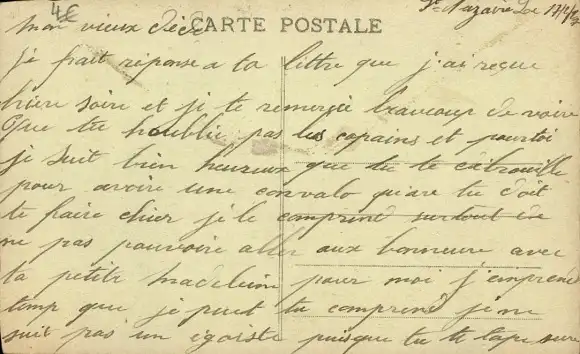 4€
St Nazaire Le 17/
CARTE POSTALE
mon vieux
je frait réponse a ta littre que j'ai reçue
hière soire et je te remercie beaucoup de voire
Que tu houblie pas les copains et pourtoi
je suit bien heureux que tu te
pour avoire une convalo qu'are tu doit
te faire chier je le comprend surtout de
ne pas pouvoire aller aux bonneure avec
ta petite madeleine pour moi j'emprend
temp que je peut tu comprend je ne
suit pas un égoiste puisque tu tape sure